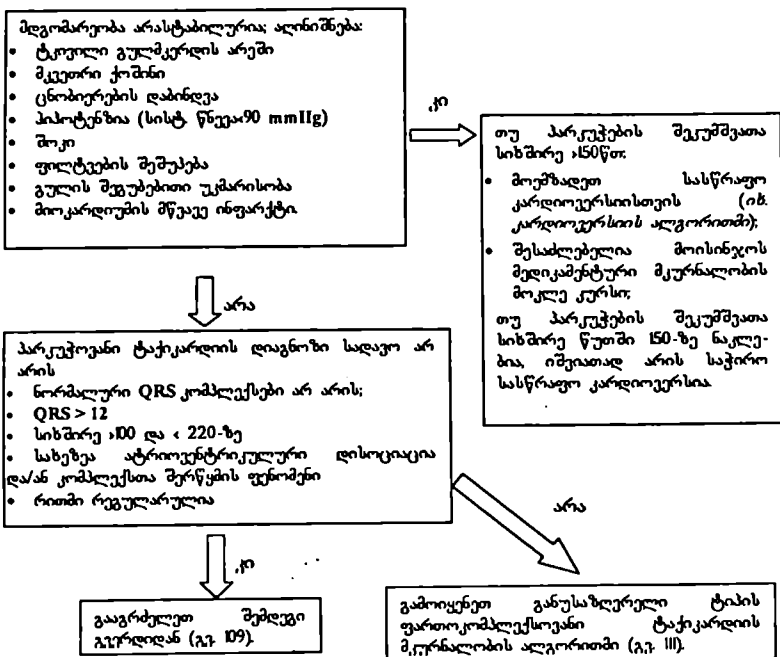 მდგომარეობა არასტაბილურია; აღინიშნება:
• ტკივილი გულმკერდის არეში
• მკვეთრი ქოშინი
• ცნობიერების დაბინდვა
• ჰიპოტენზია (სისტ. წნევა<90 mmHg)
• შოკი
• ფილტვების შეშუპება
• გულის შეგუბებითი უკმარისობა
• მიოკარდიუმის მწვავე ინფარქტი.
კი
თუ პარკუჭების შეკუმშვათა
სიხშირე >150წთ:
• მოემზადეთ სასწრაფო
კარდიოვერსიისთვის (იხ.
კარდიოვერსიის ალგორითმი);
• შესაძლებელია მოისინჯოს
მედიკამენტური მკურნალობის
მოკლე კურსი;
თუ პარკუჭების შეკუმშვათა
სიხშირე წუთში 150-ზე ნაკლე-
ბია, იშვიათად არის საჭირო
სასწრაფო კარდიოვერსია.
არა
პარკუჭოვანი ტაქიკარდიის დიაგნოზი სადავო არ
არის
• ნორმალური QRS კომპლექსები არ არის;
• QRS > 12
• სიხშირე >100 და < 220-ზე
• სახეზეა ატრიოვენტრიკულური დისოციაცია
და/ან კომპლექსთა შერწყმის ფენომენი
• რითმი რეგულარულია
არა
კი
გააგრძელეთ შემდეგი
გვერდიდან (გვ. 109).
გამოიყენეთ განუსაზღვრელი ტიპის
ფართოკომპლექსოვანი ტაქიკარდიის
მკურნალობის ალგორითმი (გვ. 111).